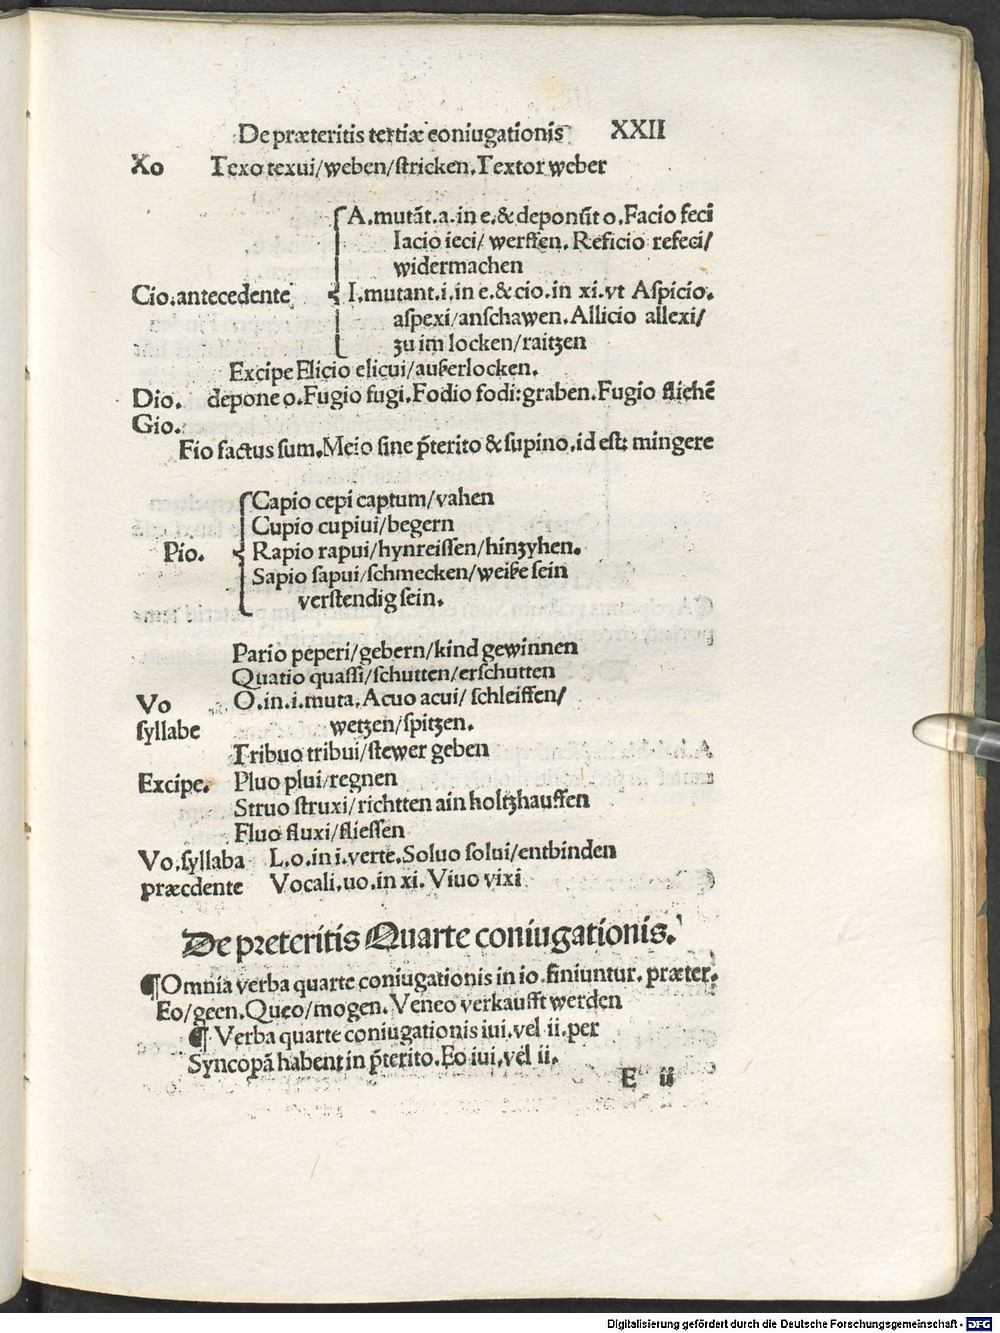 De præteritis tertiæ coniugationis XXII
Xo Texo texui/weben/stricken.Textor weber
A.mutãt.a.in e.&deponũt o.Facio feci
Iacio ieci/ werffen.Reficio refeci/
widermachen
Cio.antecedente I.mutant.i.in e.&cio.in xi.vt Aspicio.
aspexi/anschawen.Allicio allexi/
zu im locken/raitzen
Excipe Elicio elicui/außerlocken.
Dio. depone o.Fugio fugi.Fodio fodi:graben.Fugio fliehẽ
Gio.
Fio factus sum.Meio sine p̃terito & supino.id est: mingere
Capio cepi captum/vahen
Cupio cupiui/begern
Pio. Rapio rapui/hynreissen/hinzyhen.
Sapio sapui/schmecken/weiße sein
verstendig sein.
Pario peperi/gebern/kind gewinnen
Quatio quassi/schutten/erschutten
Vo O.in.i.muta.Acuo acui/ schleiffen/
syllabe wetzen/spitzen.
Tribuo tribui/stewer geben
Excipe. Pluo plui/regnen
Struo struxi/richtten ain holtzhauffen
Fluo fluxi/fliessen
Vo.syllaba L.o.in i.verte.Soluo solui/entbinden
præcdente Vocali.uo.in xi.Viuo vixi
De preteritis Quarte coniugationis.
¶Omnia verba quarte coniugationis in io.finiuntur.præter.
Eo/geen.Queo/mogen.Veneo verkaufft werden
¶ Verba quarte coniugationis iui.vel ii.per
Syncopã habent in p̃terito.Eo iui.vel ii.
E ii
Digitalisierung gefördert durch die Deutsche Forschungsgemeinschaft - DFG